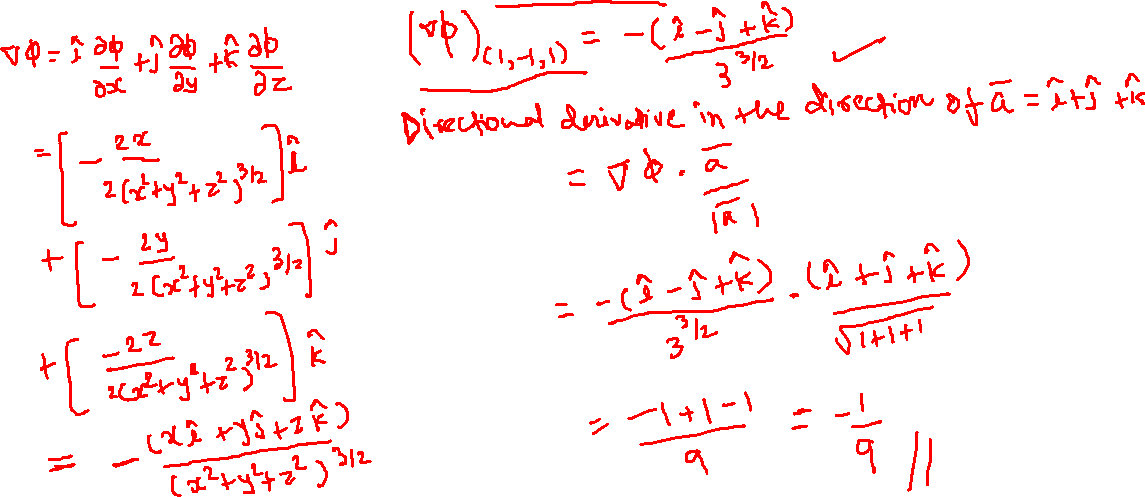 ∇φ = î ∂φ/∂x + ĵ ∂φ/∂y + k̂ ∂φ/∂z
= [ - 2x / 2(x²+y²+z²)^3/2 ] î
+ [ - 2y / 2(x²+y²+z²)^3/2 ] ĵ
+ [ -2z / 2(x²+y²+z²)^3/2 ] k̂
= - (xî + yĵ + zk̂) / (x²+y²+z²)^3/2
(∇φ)(1,-1,1) = -(î - ĵ + k̂) / 3^3/2 ✓
Directional derivative in the direction of a̅ = î+ĵ+k̂
= ∇φ · a̅ / |a̅|
= -(î - ĵ + k̂) / 3^3/2 · (î + ĵ + k̂) / √1+1+1
= -1+1-1 / 9 = -1/9 //